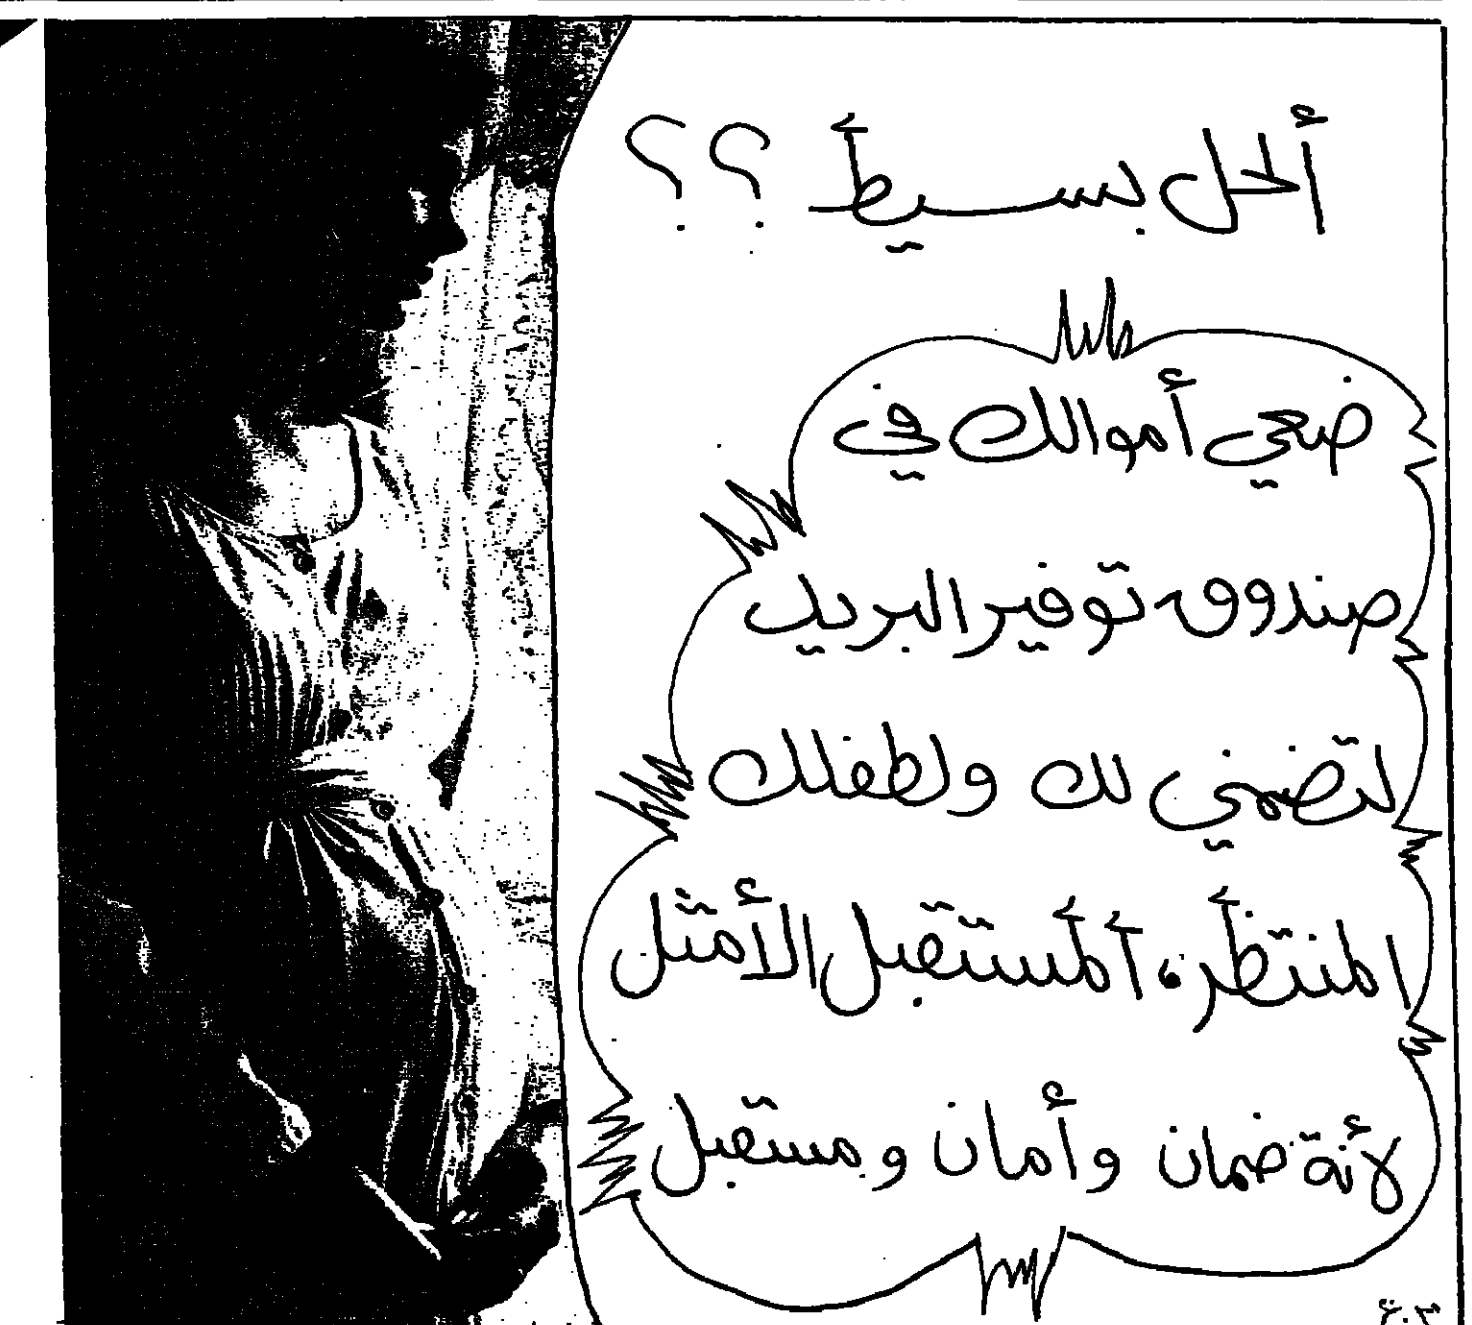 ألحل بسيط ؟؟
ضعي أموالك في
صندوق توفير البريد
لتضمني لك ولطفلك
المنتظر، ألمستقبل الأمثل
لأنة ضمان وأمان ومستقبل